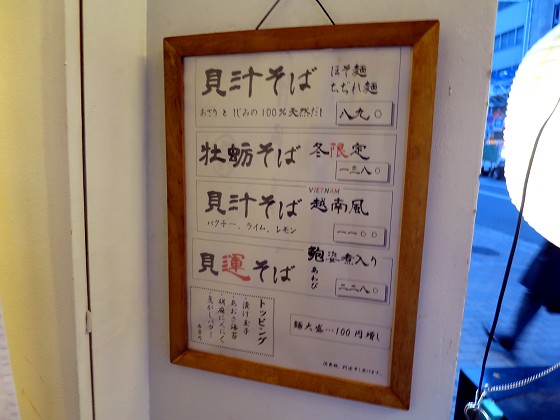 貝汁そば
ほそ麺
ちぢれ麺
あさりとしじみの100%天然だし
八九〇
牡蛎そば 冬限定
一三八〇
VIETNAM
貝汁そば 越南風
パクチー、ライム、レモン
一一〇〇
貝運そば 鮑姿煮入り
あわび
二二八〇
トッピング
・漬け玉子
・あおさ海苔
・胡麻にんにく
・焦がしバター
麺大盛…100円増し